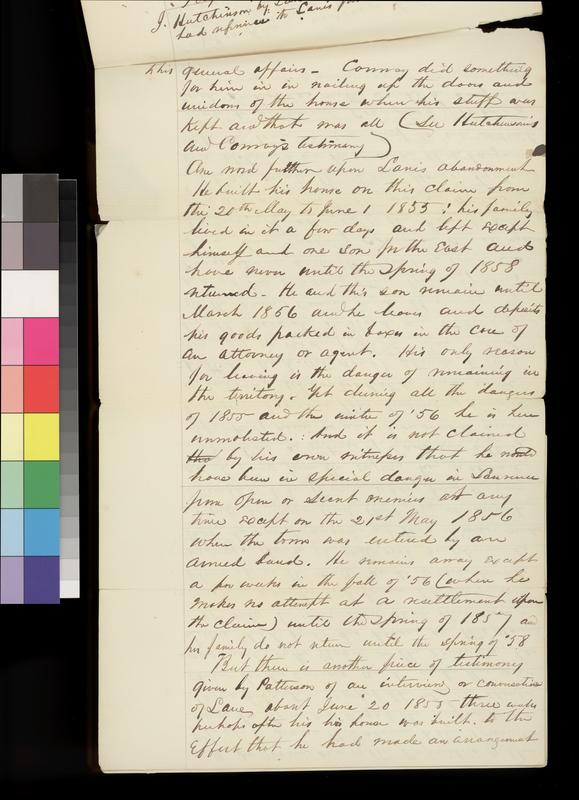 J. Hutchinson by
had reference to Lanis
his general affairs - Conway did something
for him in in nailing up the doors and
windows of the house where his stuff was
kept and that was all (See Hutchinson's
and Conway's testimony)
One word further upon Lanis abandonment
He built his house on this claim from
the 20th May to June 1 1855; his family
lived in it a few days and left except
himself and one son for the East and
have never until the Spring of 1858
returned - He and this son remain until
March 1856 and he leaves and deposits
his goods packed in boxes in the care of
an attorney or agent. His only reason
for leaving is the danger of remaining in
the territory. Yet during all the dangers
of 1855 and the winter of '56 he is here
unmolested. : And it is not claimed
tha by his own witnesses that he would
have been in special danger in Lawrence
from open or secret enemies at any
time except on the 21st May 1856
when the town was entered by an
armed band. He remains away except
a few weeks in the fall of '56 (when he
makes no attempt at a resettlement upon
the claim) until the Spring of 1857 and
his family do not return until the Spring of '58
But there is another piece of testimony
given by Patterson of an interview or conversation
of Lane, about June 20 1855 three weeks
perhaps after his his house was built. to the
Effect that he had made an arrangement